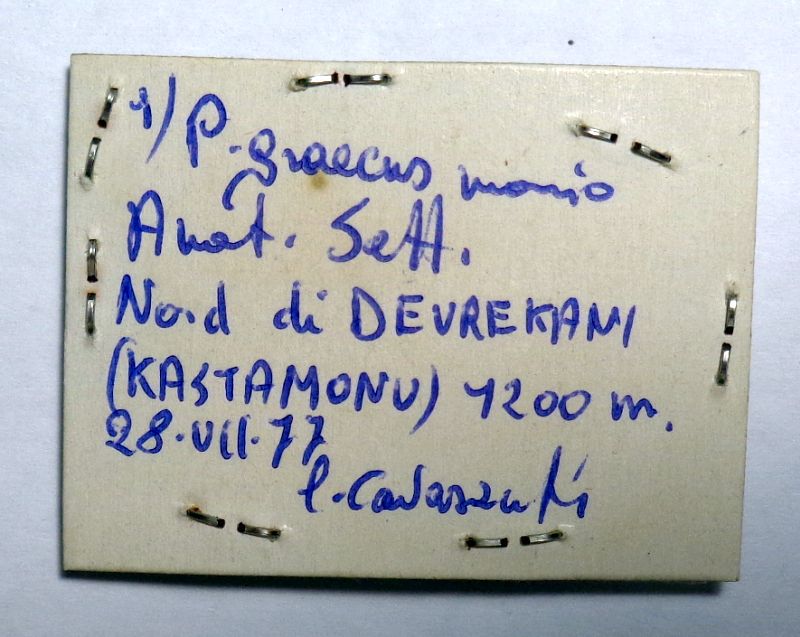 1) P. graecus
Anat. Sett.
Nord di DEVREKANI
(KASTAMONU) 1200 m.
28.VII.77
P. Cavazzuti